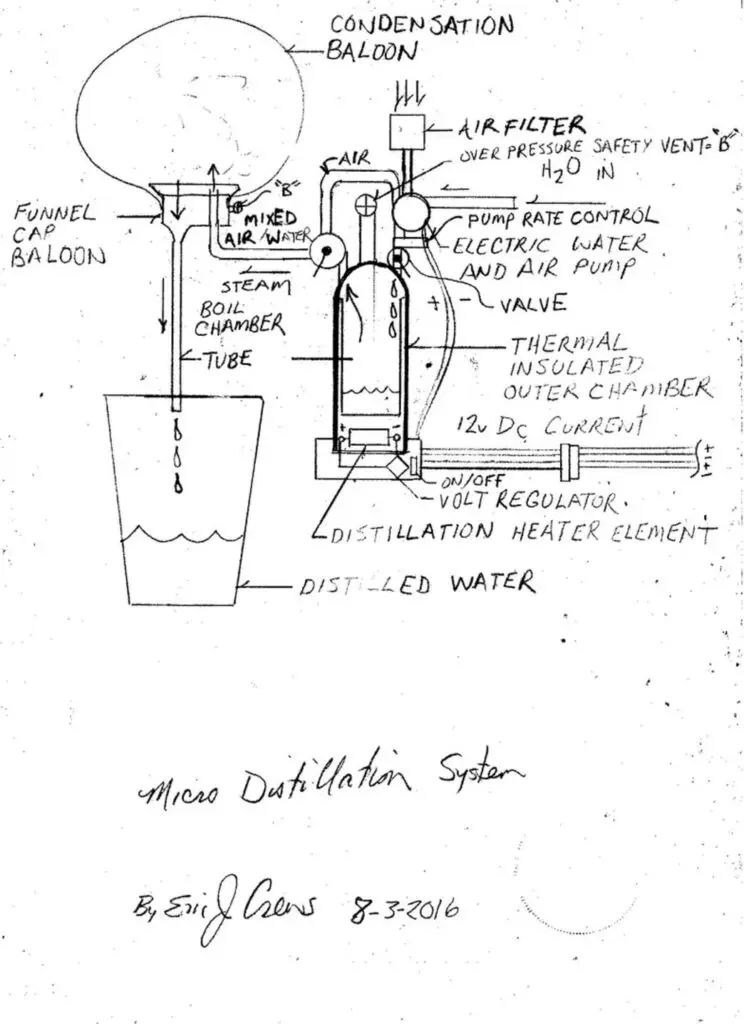 CONDENSATION
BALOON
AIR FILTER
OVER PRESSURE SAFETY VENT= "B"
H2O IN
AIR
"B"
FUNNEL
CAP
BALOON
MIXED
AIR/WATER
PUMP RATE CONTROL
ELECTRIC WATER
AND AIR PUMP
STEAM
+ -
VALVE
BOIL
CHAMBER
TUBE
THERMAL
INSULATED
OUTER CHAMBER
12v DC CURRENT
+ -
+
-
+
ON/OFF
VOLT REGULATOR.
DISTILLATION HEATER ELEMENT
DISTILLED WATER
Micro Distillation System
By Eric J Crews 8-3-2016